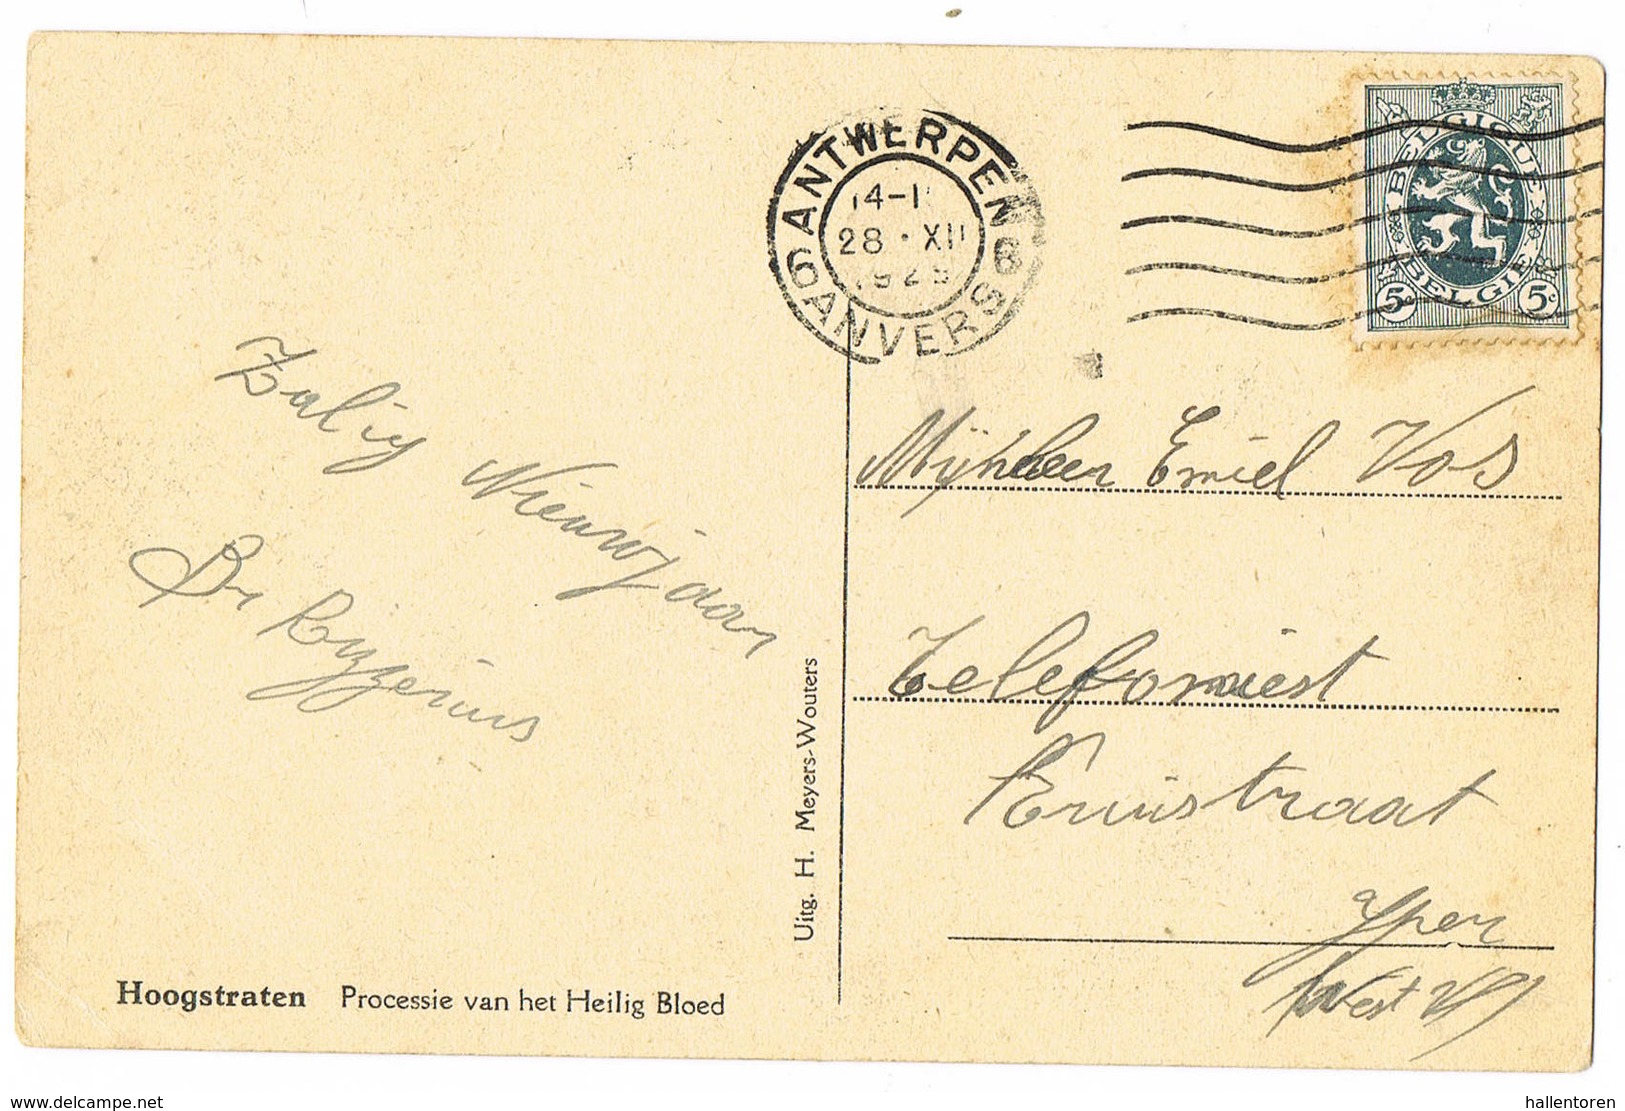 ANTWERPEN 6
14-1
28 · XII
6 ANVERS
BELGIQUE
BELGIE
5c 5c
Zalig
Nieuwjaar
Mijnheer Emiel Vos
Telefoniest
straat
Yper
West Vl
Uitg. H. Meyers-Wouters
Hoogstraten Processie van het Heilig Bloed
delcampe.net
hallentoren